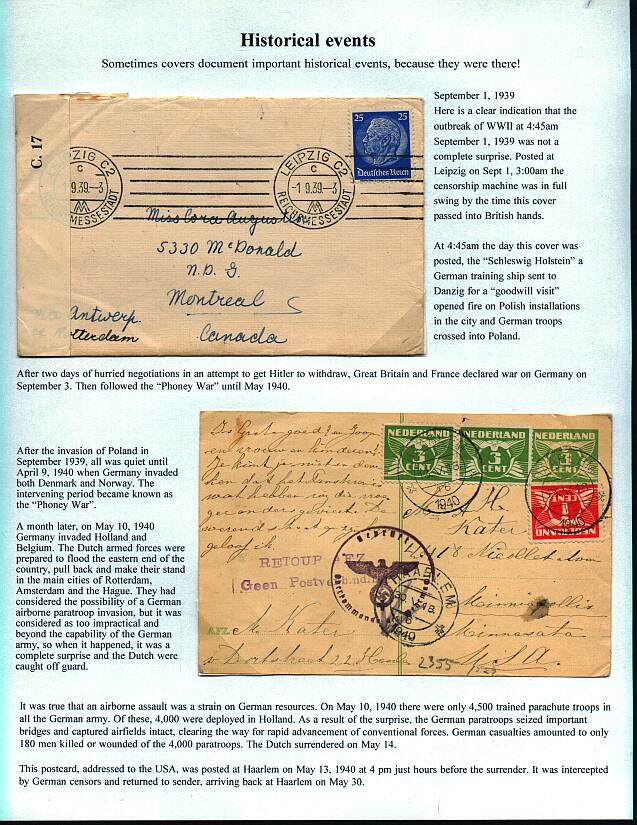 Historical events
Sometimes covers document important historical events, because they were there!
September 1, 1939
Here is a clear indication that the
outbreak of WWII at 4:45am
September 1, 1939 was not a
complete surprise. Posted at
Leipzig on Sept 1, 3:00am the
censorship machine was in full
swing by the time this cover
passed into British hands.
At 4:45am the day this cover was
posted, the “Schleswig Holstein” a
German training ship sent to
Danzig for a “goodwill visit”
opened fire on Polish installations
in the city and German troops
crossed into Poland.
C. 17
ZIG C2
C
9.39.-3
MESSESTADT
LEIPZIG C2
C
-1 9.39.-3
REICHSMESSESTADT
25 25
Deutsches Reich
Miss Cora Augustin
5330 McDonald
N.D.G.
Montreal
Canada
Antwerp
Rotterdam
After two days of hurried negotiations in an attempt to get Hitler to withdraw, Great Britain and France declared war on Germany on
September 3. Then followed the “Phoney War” until May 1940.
After the invasion of Poland in
September 1939, all was quiet until
April 9, 1940 when Germany invaded
both Denmark and Norway. The
intervening period became known as
the “Phoney War”.
A month later, on May 10, 1940
Germany invaded Holland and
Belgium. The Dutch armed forces were
prepared to flood the eastern end of the
country, pull back and make their stand
in the main cities of Rotterdam,
Amsterdam and the Hague. They had
considered the possibility of a German
airborne paratroop invasion, but it was
considered as too impractical and
beyond the capability of the German
army, so when it happened, it was a
complete surprise and the Dutch were
caught off guard.
NEDERLAND
3
CENT
NEDERLAND
3
CENT
NEDERLAND
3
CENT
NEDERLAND
1
CENT
1940
1940
H.
Kater
Nicollet
Minneapolis
Minnesata
U.S.A.
RETOUR AFZ
Geen Postverbinding
HAARLEM
1940
AFZ.
M. Kater
22 Haarlem
2355
It was true that an airborne assault was a strain on German resources. On May 10, 1940 there were only 4,500 trained parachute troops in
all the German army. Of these, 4,000 were deployed in Holland. As a result of the surprise, the German paratroops seized important
bridges and captured airfields intact, clearing the way for rapid advancement of conventional forces. German casualties amounted to only
180 men killed or wounded of the 4,000 paratroops. The Dutch surrendered on May 14.
This postcard, addressed to the USA, was posted at Haarlem on May 13, 1940 at 4 pm just hours before the surrender. It was intercepted
by German censors and returned to sender, arriving back at Haarlem on May 30.